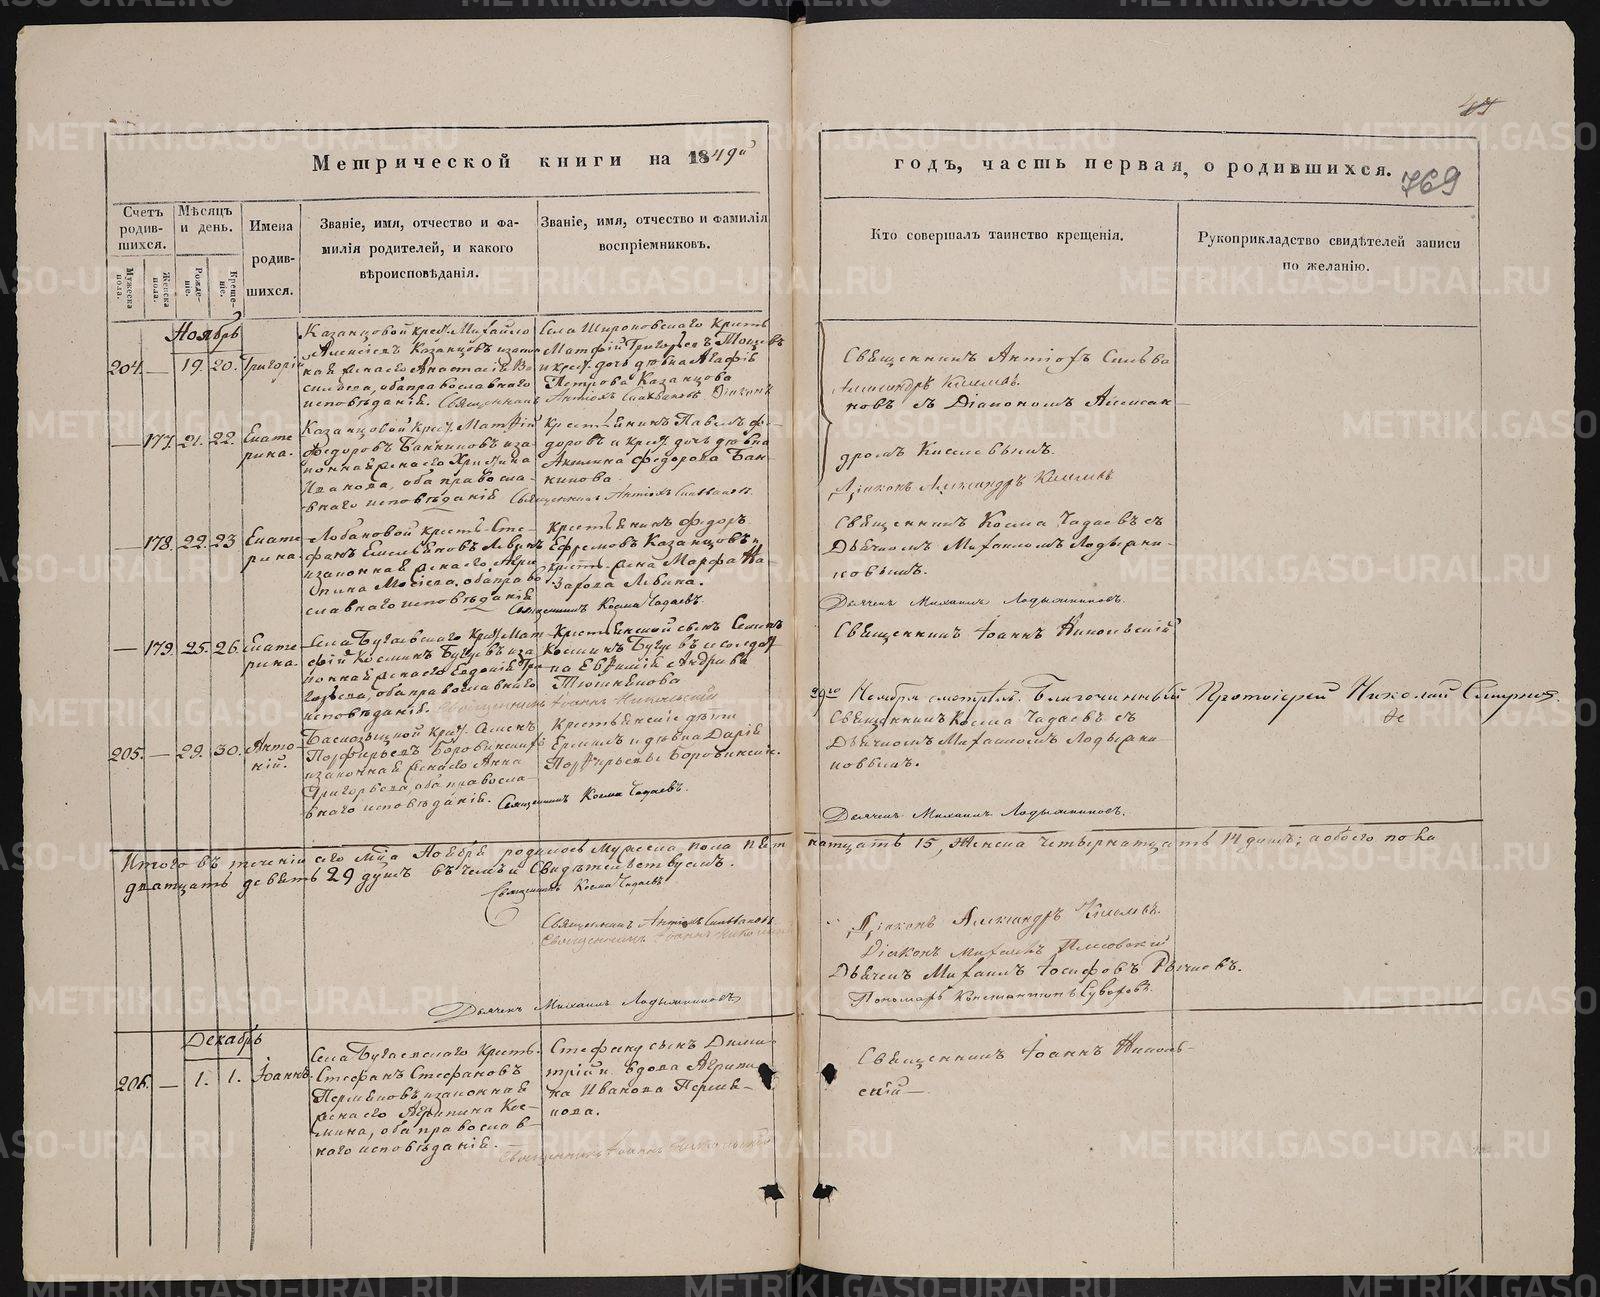 Метрической книги на 1849й
годъ, часть первая, о родившихся.
769
Счетъ родившихся.
Мужеска пола.
Женска пола.
Мѣсяцъ и день.
Рожденіе.
Крещеніе.
Имена родившихся.
Званіе, имя, отчество и фамилія родителей, и какого вѣроисповѣданія.
Званіе, имя, отчество и фамилія воспріемниковъ.
Кто совершалъ таинство крещенія.
Рукоприкладство свидѣтелей записи по желанію.
Ноябрь
204. — 19. 20. Григорій
Казанцовой крест. Михайло
Алексіевъ Казанцовъ
Анастасія Ва
сильева, оба православнаго
исповѣданія. Священникъ Антіохъ Сильвановъ Діаконъ
Матфій Григорьевъ
и крест. дочь дѣвка Агафія
Петрова Казанцова
Священникъ Антіохъ Сильва
Александръ Киселевъ.
новъ съ Діакономъ Алексан
дромъ Киселевымъ.
Діаконъ Александръ Киселевъ
— 177. 21. 22. Екате
рина.
Казанцовой крест. Матфій
Федоровъ Банкиновъ и за
конная жена его Христина
Иванова, оба правосла-
внаго исповѣданія Священникъ Антіохъ Сильвановъ.
Крестьянинъ Павелъ Фе-
доровъ и крест. дочь дѣвка
Акилина Федорова Бан-
кинова.
— 178. 22. 23 Екате
рина.
Лобановой крест. Сте-
фанъ Емельяновъ Левинъ
и законная жена его Агри
пина Моѵсіева, оба право
славнаго исповѣданія
Священникъ Косма Чадаевъ.
Крестьянинъ Федоръ
Ефремовъ Казанцовъ и
крест. жена Марфа На-
зарова Левина.
Священникъ Косма Чадаевъ съ
Дьячкомъ Михаиломъ Ладыжни-
ковымъ.
Дьячекъ Михаилъ Ладыжниковъ.
— 179. 25. 26. Екате
рина.
Села Бугаевскаго Крест. Мат
фій Косминъ Бугуевъ и за
конная жена его Евдокія Гри
горьева, оба православнаго
исповѣданія. Священникъ Іоаннъ Никольскій
Крестьянской сынъ Семенъ
Косминъ Бугуевъ и солдат
ка Евфимія Андріева
Священникъ Іоаннъ Никольскій
205. — 29. 30. Анто-
ній.
крест. Семенъ
Порфирьевъ Боровинскихъ
и законная жена его Анна
Григорьева, оба правосла-
внаго исповѣданія. Священникъ Косма Чадаевъ.
Крестьянскіе дѣти
Ермилъ и дѣвка Дарія
Порфирьевы Боровинскіе.
30го Ноября смотрѣлъ. Благочинный Протоіерей Николай Смирновъ.
Священникъ Косма Чадаевъ съ
Дьячкомъ Михаиломъ Ладыжни
ковымъ.
Дьячекъ Михаилъ Ладыжниковъ.
Итого въ теченіи сего Мѣца Ноября родилось Мужеска пола пят натцать 15, Женска Четырнатцать 14 душъ; а обоего пола
двадцать девять 29 душъ въ чемъ и Свидѣтельствуемъ.
Священникъ Косма Чадаевъ
Священникъ Антіохъ Сильвановъ
Священникъ Іоаннъ Никольскій
Дьячекъ Михаилъ Ладыжниковъ
Діаконъ Александръ Киселевъ.
Діаконъ Михаилъ
Дьячекъ Михаилъ Іосифовъ Рычковъ.
Пономарь Константинъ Суворовъ.
Декабрь
206. — 1. 1. Іоаннъ.
Села Бугаевскаго Крест.
Стефанъ Стефановъ
Перменовъ и законная
жена его Агрипина Кос-
мина, оба православ-
наго исповѣданія.
Священникъ Іоаннъ Никольскій
Стефану сынъ Дими-
трій и вдова Агрипи-
на Иванова Перме-
нова.
Священникъ Іоаннъ Николь-
скій
METRIKI.GASO-URAL.RU